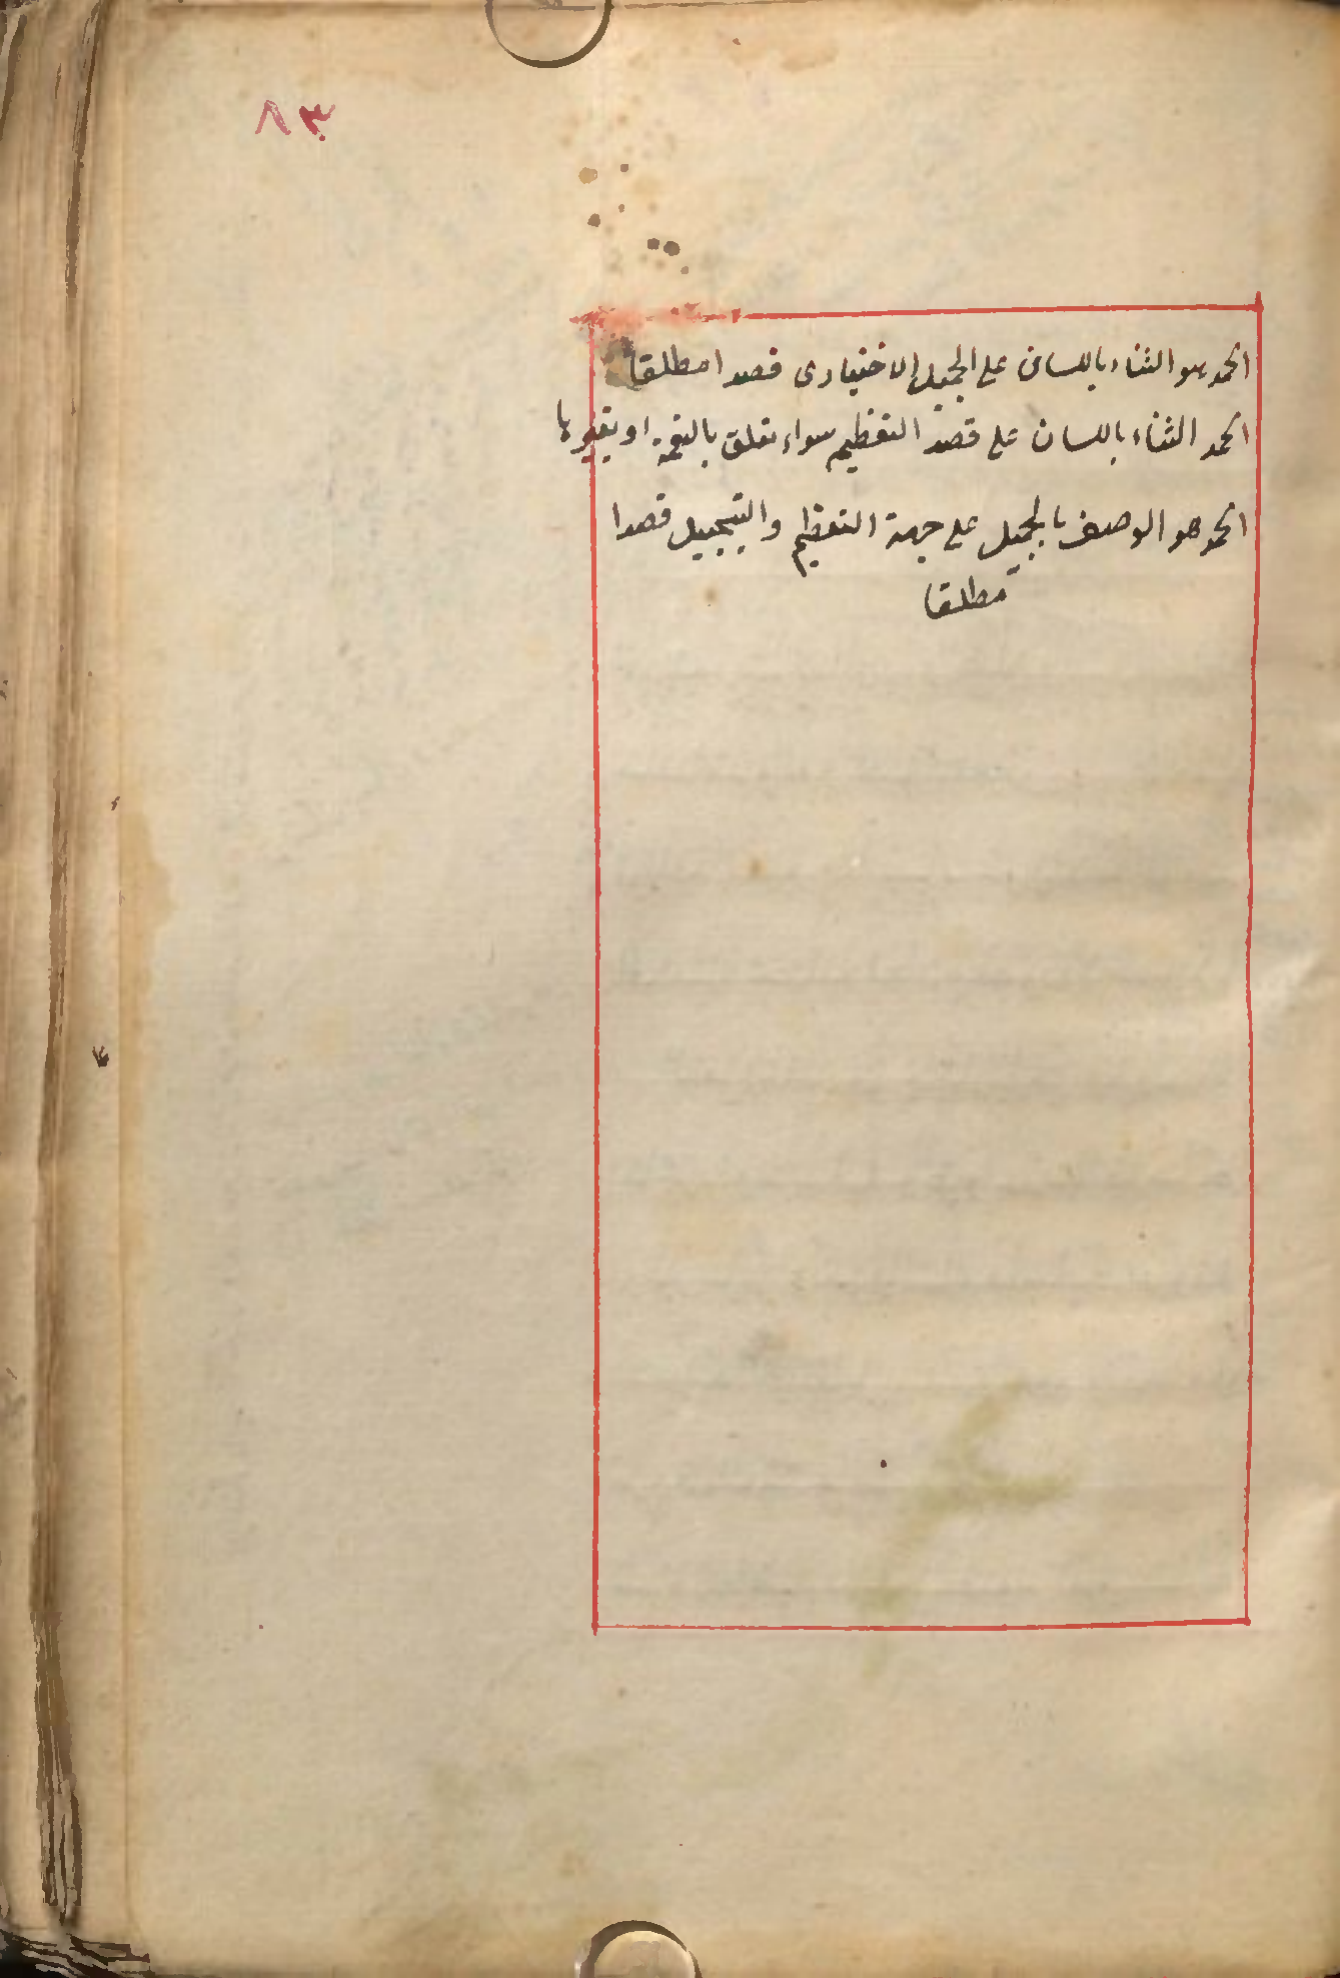 ٨٣
الحمد هو الثناء باللسان على الجميل الاختيارى قصدا مطلقا
الحمد الثناء باللسان على قصد التعظيم سواء تعلق بالنعمة او بغيرها
الحمد هو الوصف بالجميل على جهة التعظيم والتبجيل قصدا
مطلقا